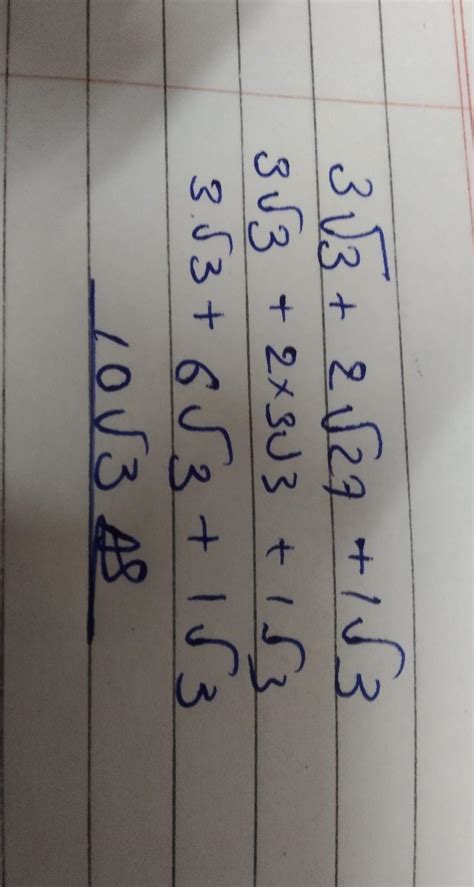 3√3 + 2√27 + 1√3
3√3 + 2×3√3 + 1√3
3√3 + 6√3 + 1√3
10√3